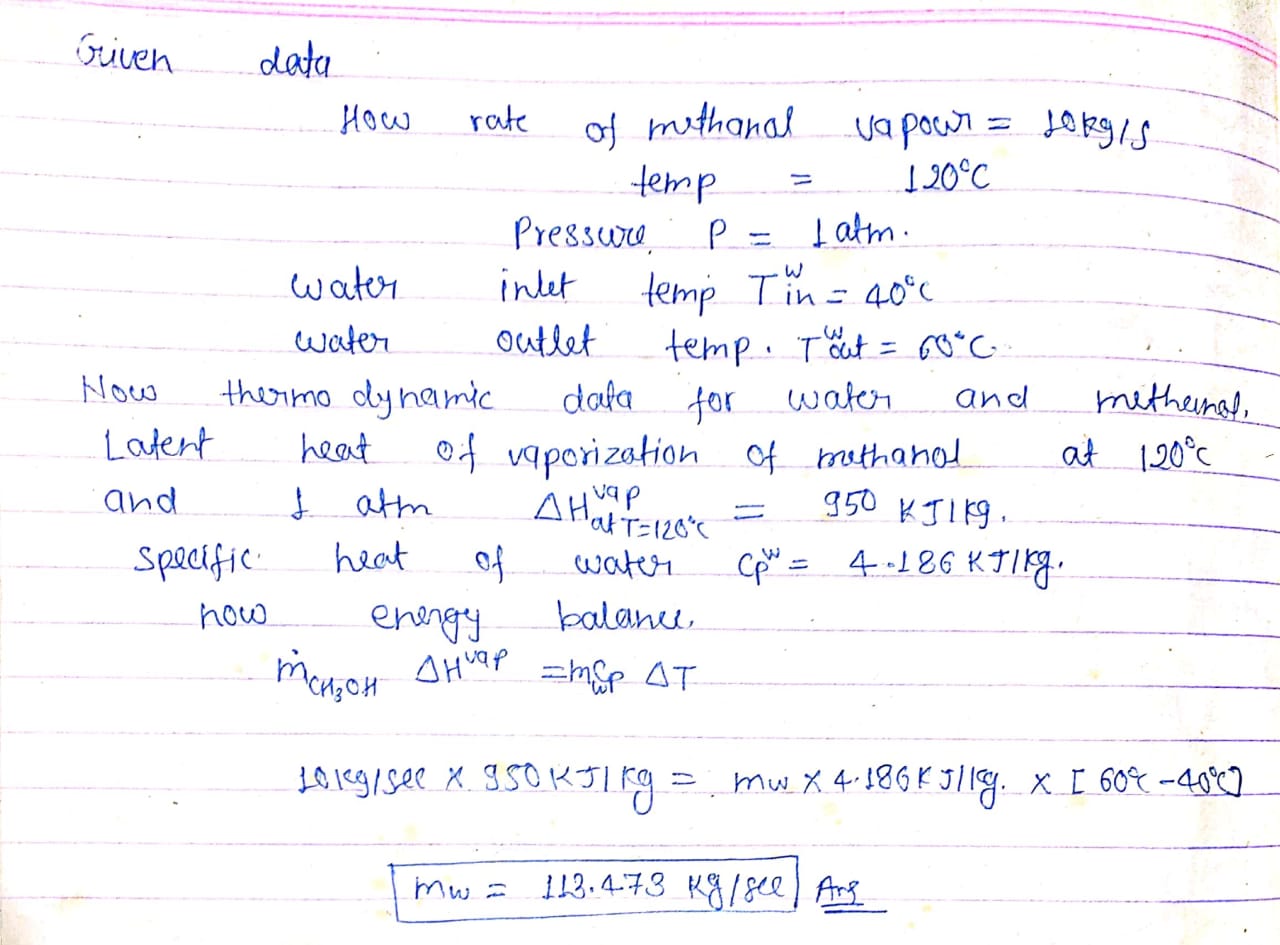 Given data
Flow rate of methanol vapour = 10kg/s
temp = 120°C
Pressure, P = 1 atm.
water inlet temp T in^w = 40°C
water outlet temp. T out^w = 60°C.
Now thermo dynamic data for water and methanol,
Latent heat of vaporization of methanol at 120°C
and 1 atm ΔH^vap at T=120°C = 950 KJ/kg.
specific heat of water Cp^w = 4.186 KJ/kg.
now energy balance,
ṁ_CH3OH ΔH^vap = m_w Cp ΔT
10kg/sec x 950KJ/kg = mw x 4.186KJ/kg. x [60°C-40°C]
mw = 113.473 kg/sec Ans